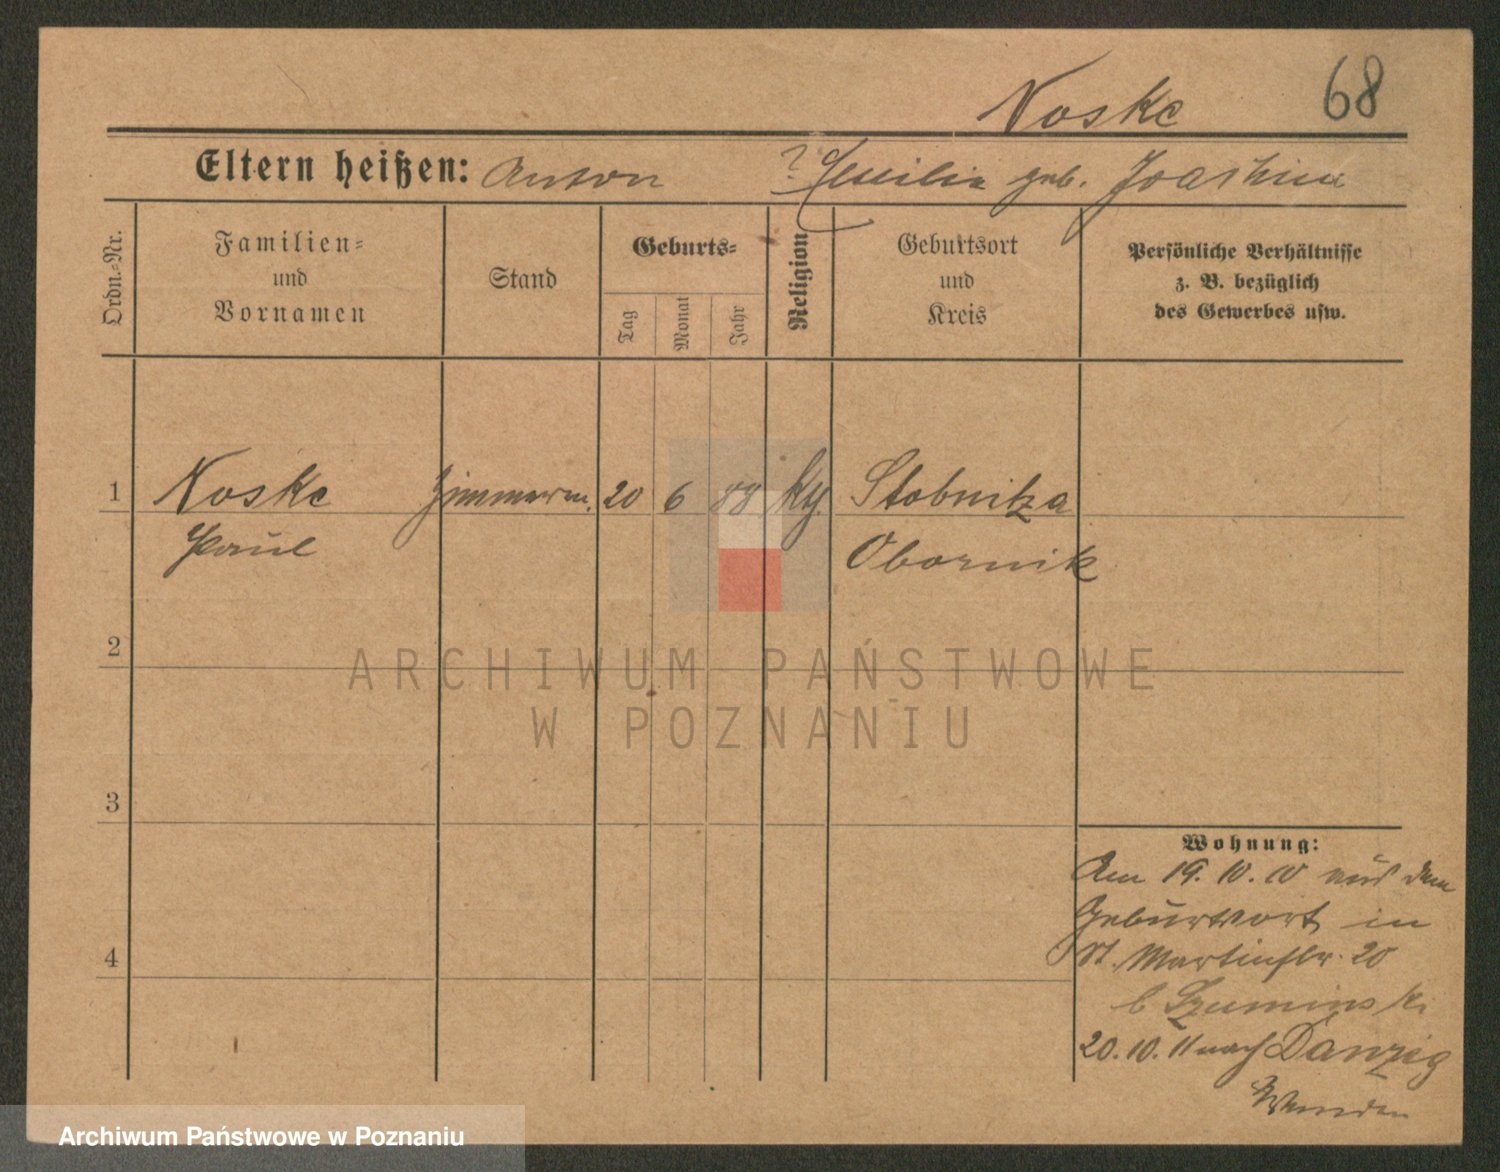 Noske 68
Eltern heißen: Anton ? Cecilia geb. Joachina
Ordn.-Nr.
Familien-
und
Vornamen
Stand
Geburts-
Tag
Monat
Jahr
Religion
Geburtsort
und
Kreis
Persönliche Verhältnisse
z. B. bezüglich
des Gewerbes usw.
1 Noske Zimmerm. 20 6 88 Stobnitza
Paul Obornik
2
3
4
Wohnung:
Am 19.10.10 aus dem
Geburtsort in
St. Martinstr. 20
b Szuminski
20.10.11 nach Danzig
ARCHIWUM PAŃSTWOWE
W POZNANIU
Archiwum Państwowe w Poznaniu